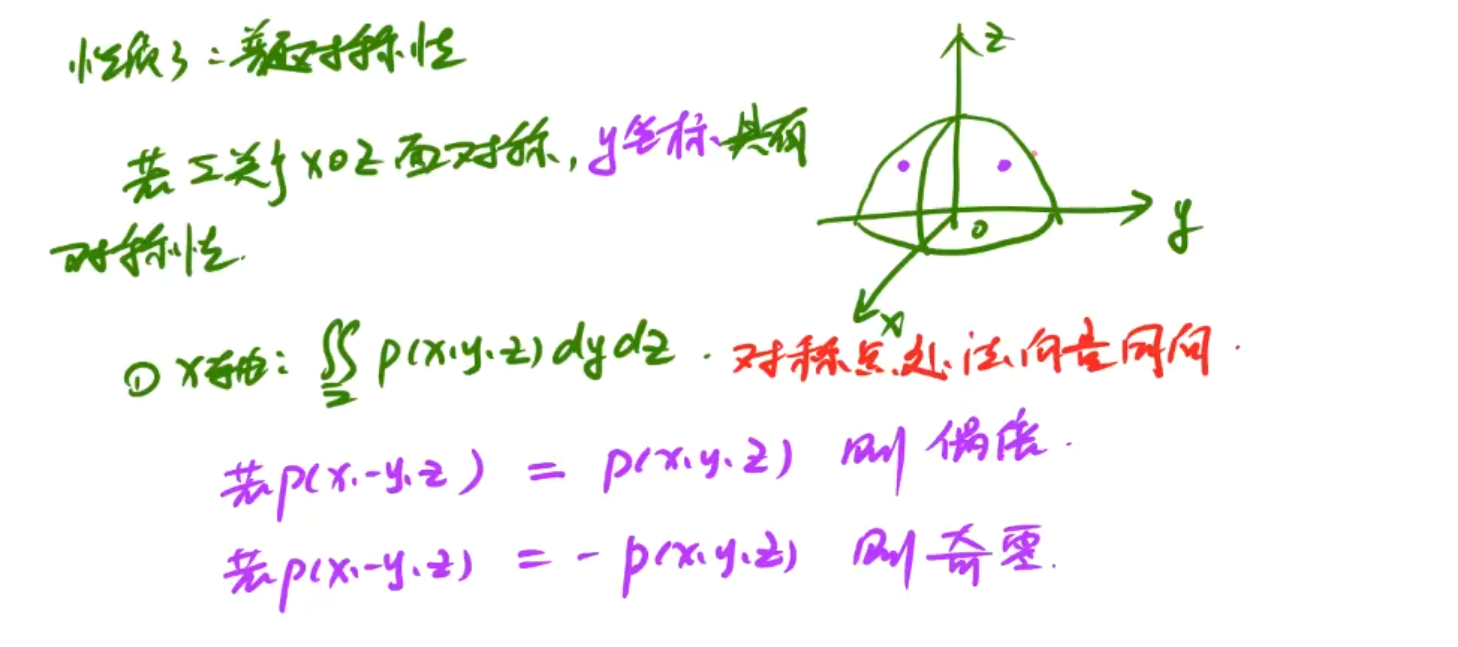 性质3：普通对称性
若Σ关于xoz面对称，y坐标具有
对称性.
① x轴： ∬Σ p(x,y,z)dydz . 对称点处法向量同向.
若p(x,-y,z) = p(x,y,z) 则偶倍.
若p(x,-y,z) = -p(x,y,z) 则奇零.
z
y
x
o